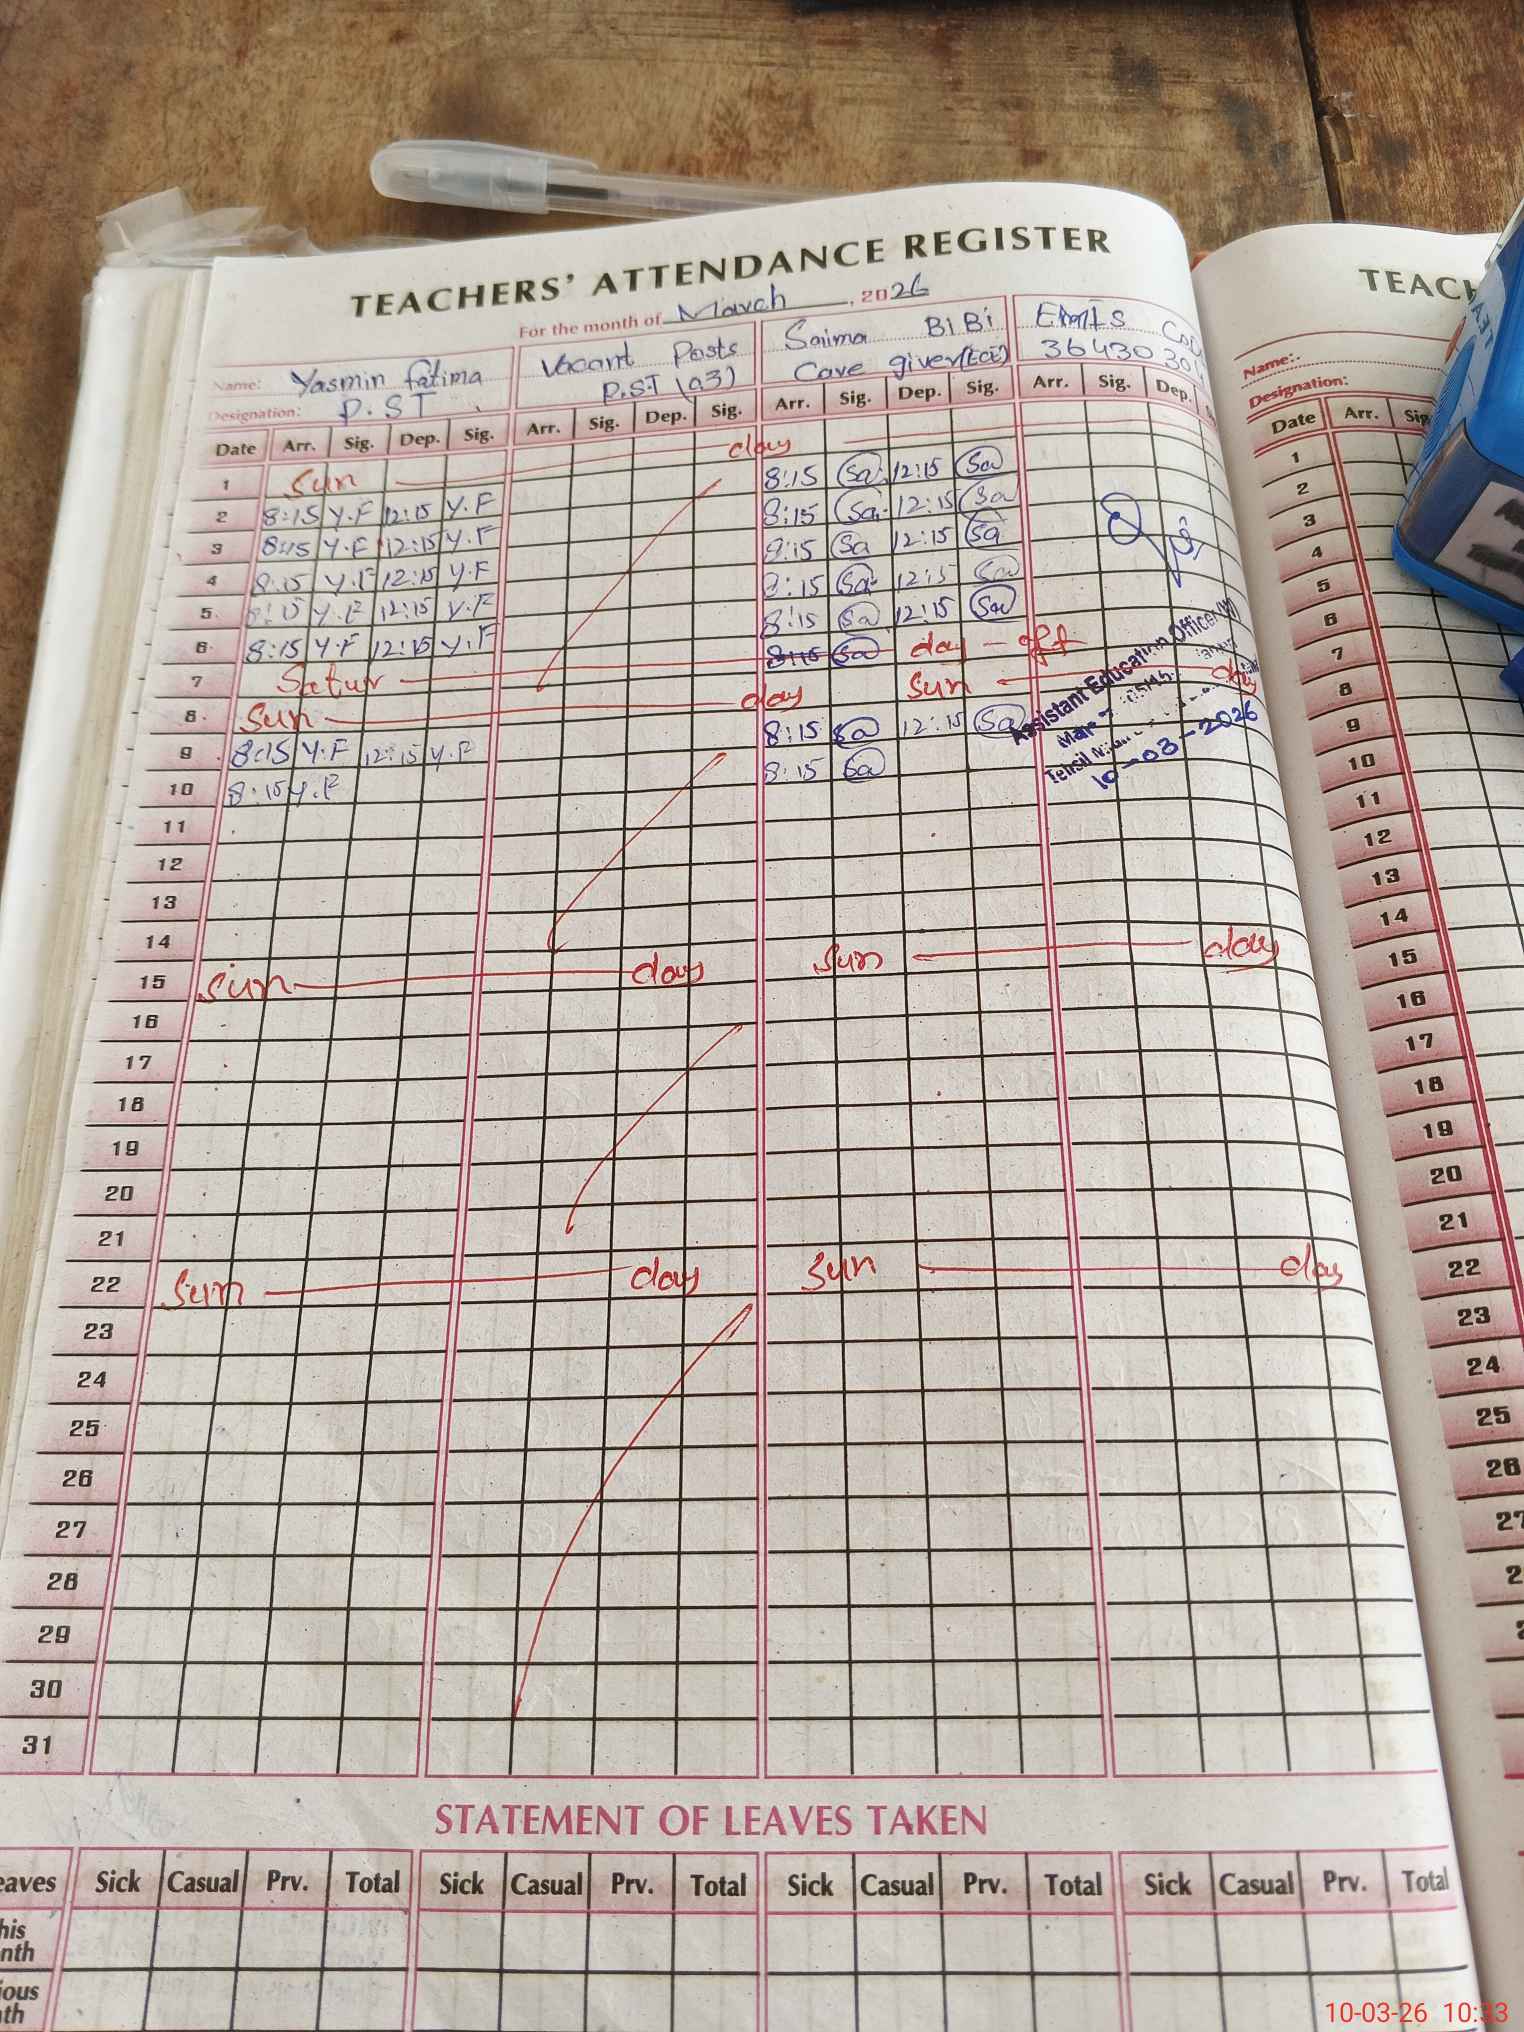 TEACHERS' ATTENDANCE REGISTER
For the month of March, 2026
Name: Yasmin fatima
Designation: P.ST
Vacant Posts
P.ST (03)
Saima BIBi
Cave giver(ECE)
EMIS
36430304
Date Arr. Sig. Dep. Sig. Arr. Sig. Dep. Sig. Arr. Sig. Dep. Sig. Arr. Sig. Dep.
1 Sun day
2 8:15 Y.F 12:15 Y.F 8:15 Sa 12:15 Sa
3 8:15 Y.F 12:15 Y.F 8:15 Sa 12:15 Sa
4 8:15 Y.F 12:15 Y.F 8:15 Sa 12:15 Sa
5 8:15 Y.F 12:15 Y.F 8:15 Sa 12:15 Sa
6 8:15 Y.F 12:15 Y.F 8:15 Sa 12:15 Sa
7 Satur 8:15 Sa day - off
8 Sun day Sun day
9 8:15 Y.F 12:15 Y.F 8:15 Sa 12:15 Sa
10 8:15 Y.F 8:15 Sa
Assistant Education Officer (W)
Tehsil
10-03-2026
11
12
13
14
15 Sun day Sun day
16
17
18
19
20
21
22 Sun day Sun day
23
24
25
26
27
28
29
30
31
STATEMENT OF LEAVES TAKEN
eaves Sick Casual Prv. Total Sick Casual Prv. Total Sick Casual Prv. Total Sick Casual Prv. Total
his
nth
ious
th
TEACH
Name:
Designation:
Date Arr. Sig
1
2
3
4
5
6
7
8
9
10
11
12
13
14
15
16
17
18
19
20
21
22
23
24
25
26
27
10-03-26 10:33